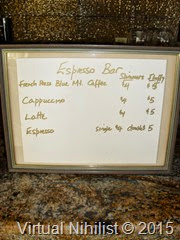 Espresso Bar
Skinners Fluffy
French Press Blue Mt. Coffee $4 $5
Cappuccino $4 $5
Latte $4 $5
Espresso single $4 double $5
Virtual Nihilist © 2015